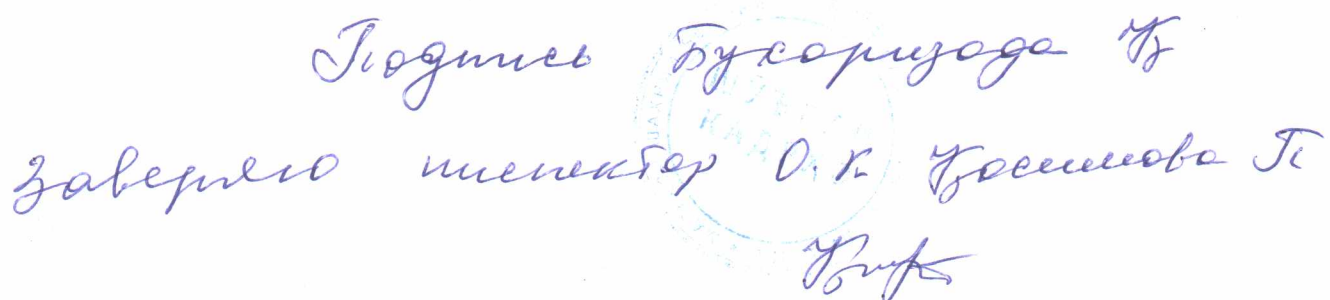 Подпись Бухоризода Қ
Заверяю инспектор О.К Қосимова П